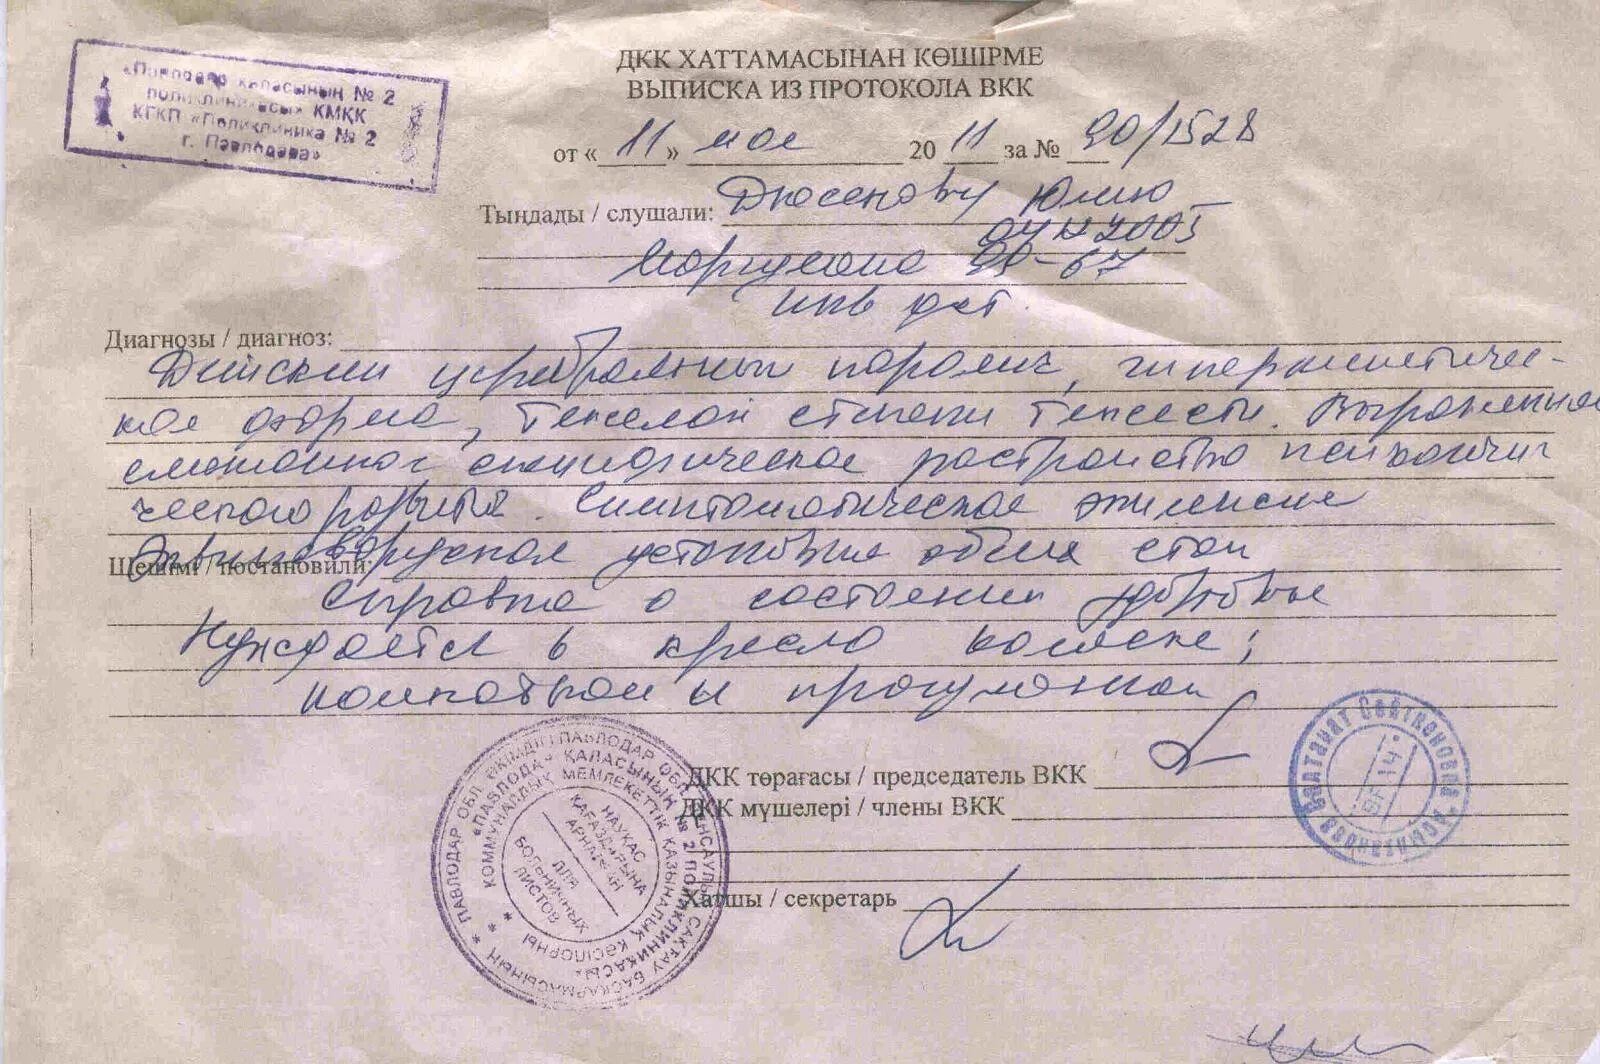 «Павлодар қаласының № 2
поликлиникасы» КМҚК
КГКП «Поликлиника № 2
г. Павлодара»
ДКК ХАТТАМАСЫНАН КӨШІРМЕ
ВЫПИСКА ИЗ ПРОТОКОЛА ВКК
от « 11 » мая 20 11 за № 90/1528
Тыңдады / слушали: Дюсенову Юлию
2005
99-67
инв дет.
Диагнозы / диагноз:
Детский церебральный паралич, гиперкинетичес-
кая форма, тяжелой степени тяжести. Выраженное
смешанное специфическое расстройство психологич
ческого развития. Симптоматическая эпилепсия
установка обеих стоп
Шешімі / постановили:
Справка о состоянии здоровья
Нуждается в кресло коляске;
комнатной и прогулочной
ДКК төрағасы / председатель ВКК
ДКК мүшелері / члены ВКК
Хатшы / секретарь
ПАВЛОДАР ОБЛ ӘКІМДІГІ ПАВЛОДАР ОБЛ ДЕНСАУЛЫҚ САҚТАУ БАСҚАРМАСЫНЫҢ
«ПАВЛОДАР ҚАЛАСЫНЫҢ № 2 ПОЛИКЛИНИКАСЫ»
КОММУНАЛДЫҚ МЕМЛЕКЕТТІК ҚАЗЫНАЛЫҚ КӘСІПОРНЫ
НАУҚАС
ҚАҒАЗДАРЫНА
АРНАЛҒАН
ДЛЯ
БОЛЬНИЧНЫХ
ЛИСТОВ